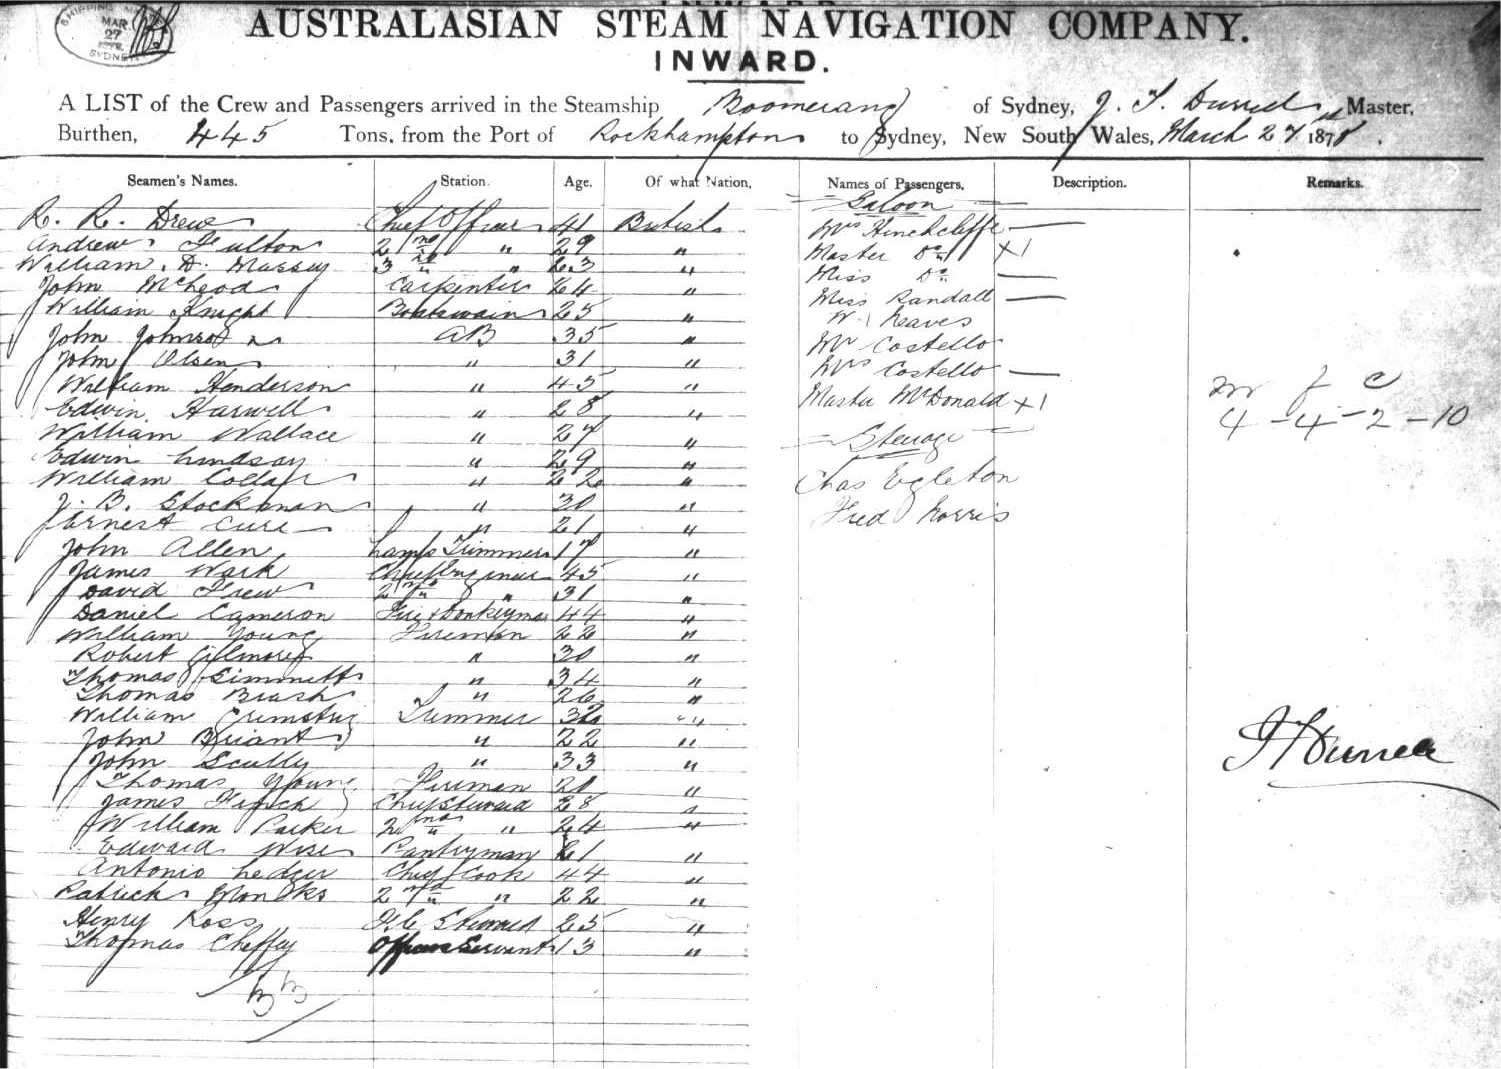 SHIPPING MASTER
MAR
27
SYDNEY
AUSTRALASIAN STEAM NAVIGATION COMPANY.
INWARD.
A LIST of the Crew and Passengers arrived in the Steamship Boomerang of Sydney, J. T. Durrell Master,
Burthen, 445 Tons, from the Port of Rockhampton to Sydney, New South Wales, March 27th 1878.
Seamen's Names. Station. Age. Of what Nation,
R. R. Drew Chief Officer 41 British
Andrew Fulton 2nd " " 29 "
William. D. Massey 3rd " " 23 "
John McLeod Carpenter 24 "
William Knight Boatswain 25 "
John Johnson AB 35 "
John Olsen " 31 "
William Henderson " 45 "
Edwin Harwell " 28 "
William Wallace " 27 "
Edwin Lindsay " 29 "
William " 22 "
J. B. Stockman " 30 "
Ernest Cure " 21 "
John Allen Lamp Trimmer 17 "
James Wark Chief Engineer 45 "
David Frew 2nd " " 31 "
Daniel Cameron Fire & Donkeyman 44 "
William Young Fireman 22 "
Robert Gilmore " 30 "
Thomas Simmett " 34 "
Thomas Brash " 26 "
William Trimmer 32 "
John Briant " 22 "
John Scully " 33 "
Thomas Young Fireman 20 "
James Finch Chief Steward 28 "
William Parker 2nd " " 24 "
Edward Wise Pantryman 21 "
Antonio Chief Cook 44 "
Patrick Monks 2nd " " 22 "
Henry Ross Steward 25 "
Thomas Cheffey Officers Servant 13 "
Names of Passengers, Description. Remarks.
Saloon
Mrs Hinchcliffe —
Master Do X1
Miss Do —
Miss Randall —
W. Reaves
Mr Costello
Mrs Costello —
Master McDonald X1
Steerage
Chas Egleton
Fred Norris
m f c
4 - 4 - 2 - 10
J T Durrell